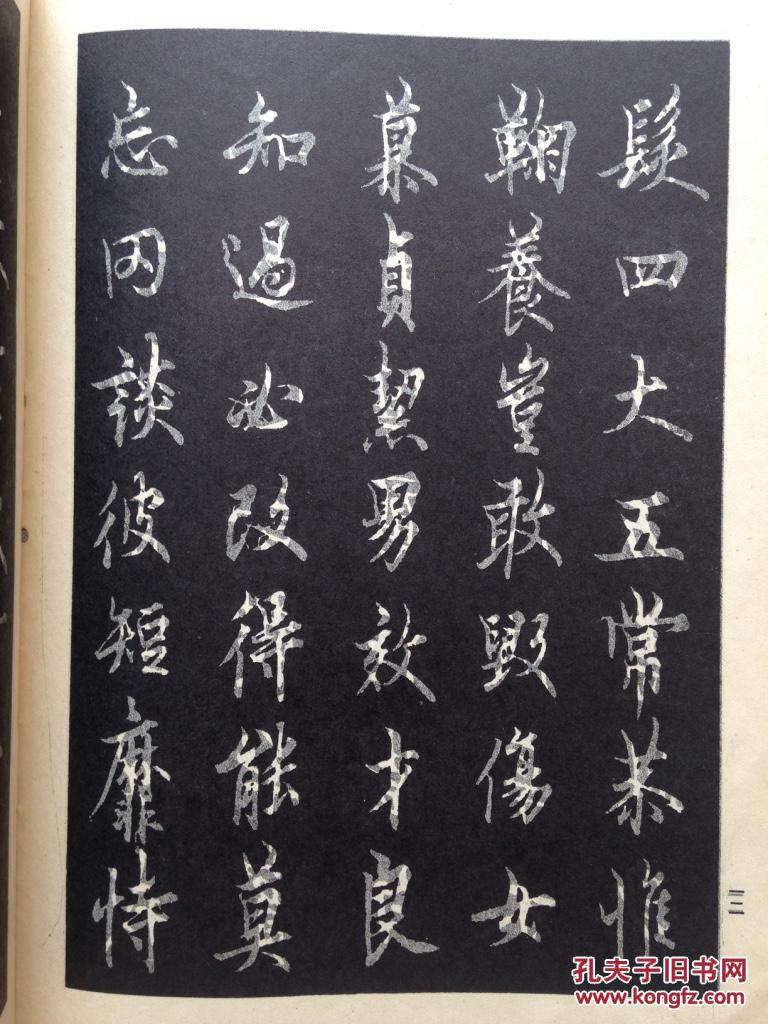 髮四大五常恭惟
鞠養豈敢毀傷女
慕貞絜男效才良
知過必改得能莫
忘罔談彼短靡恃
三二
孔夫子旧书网
www.kongfz.com